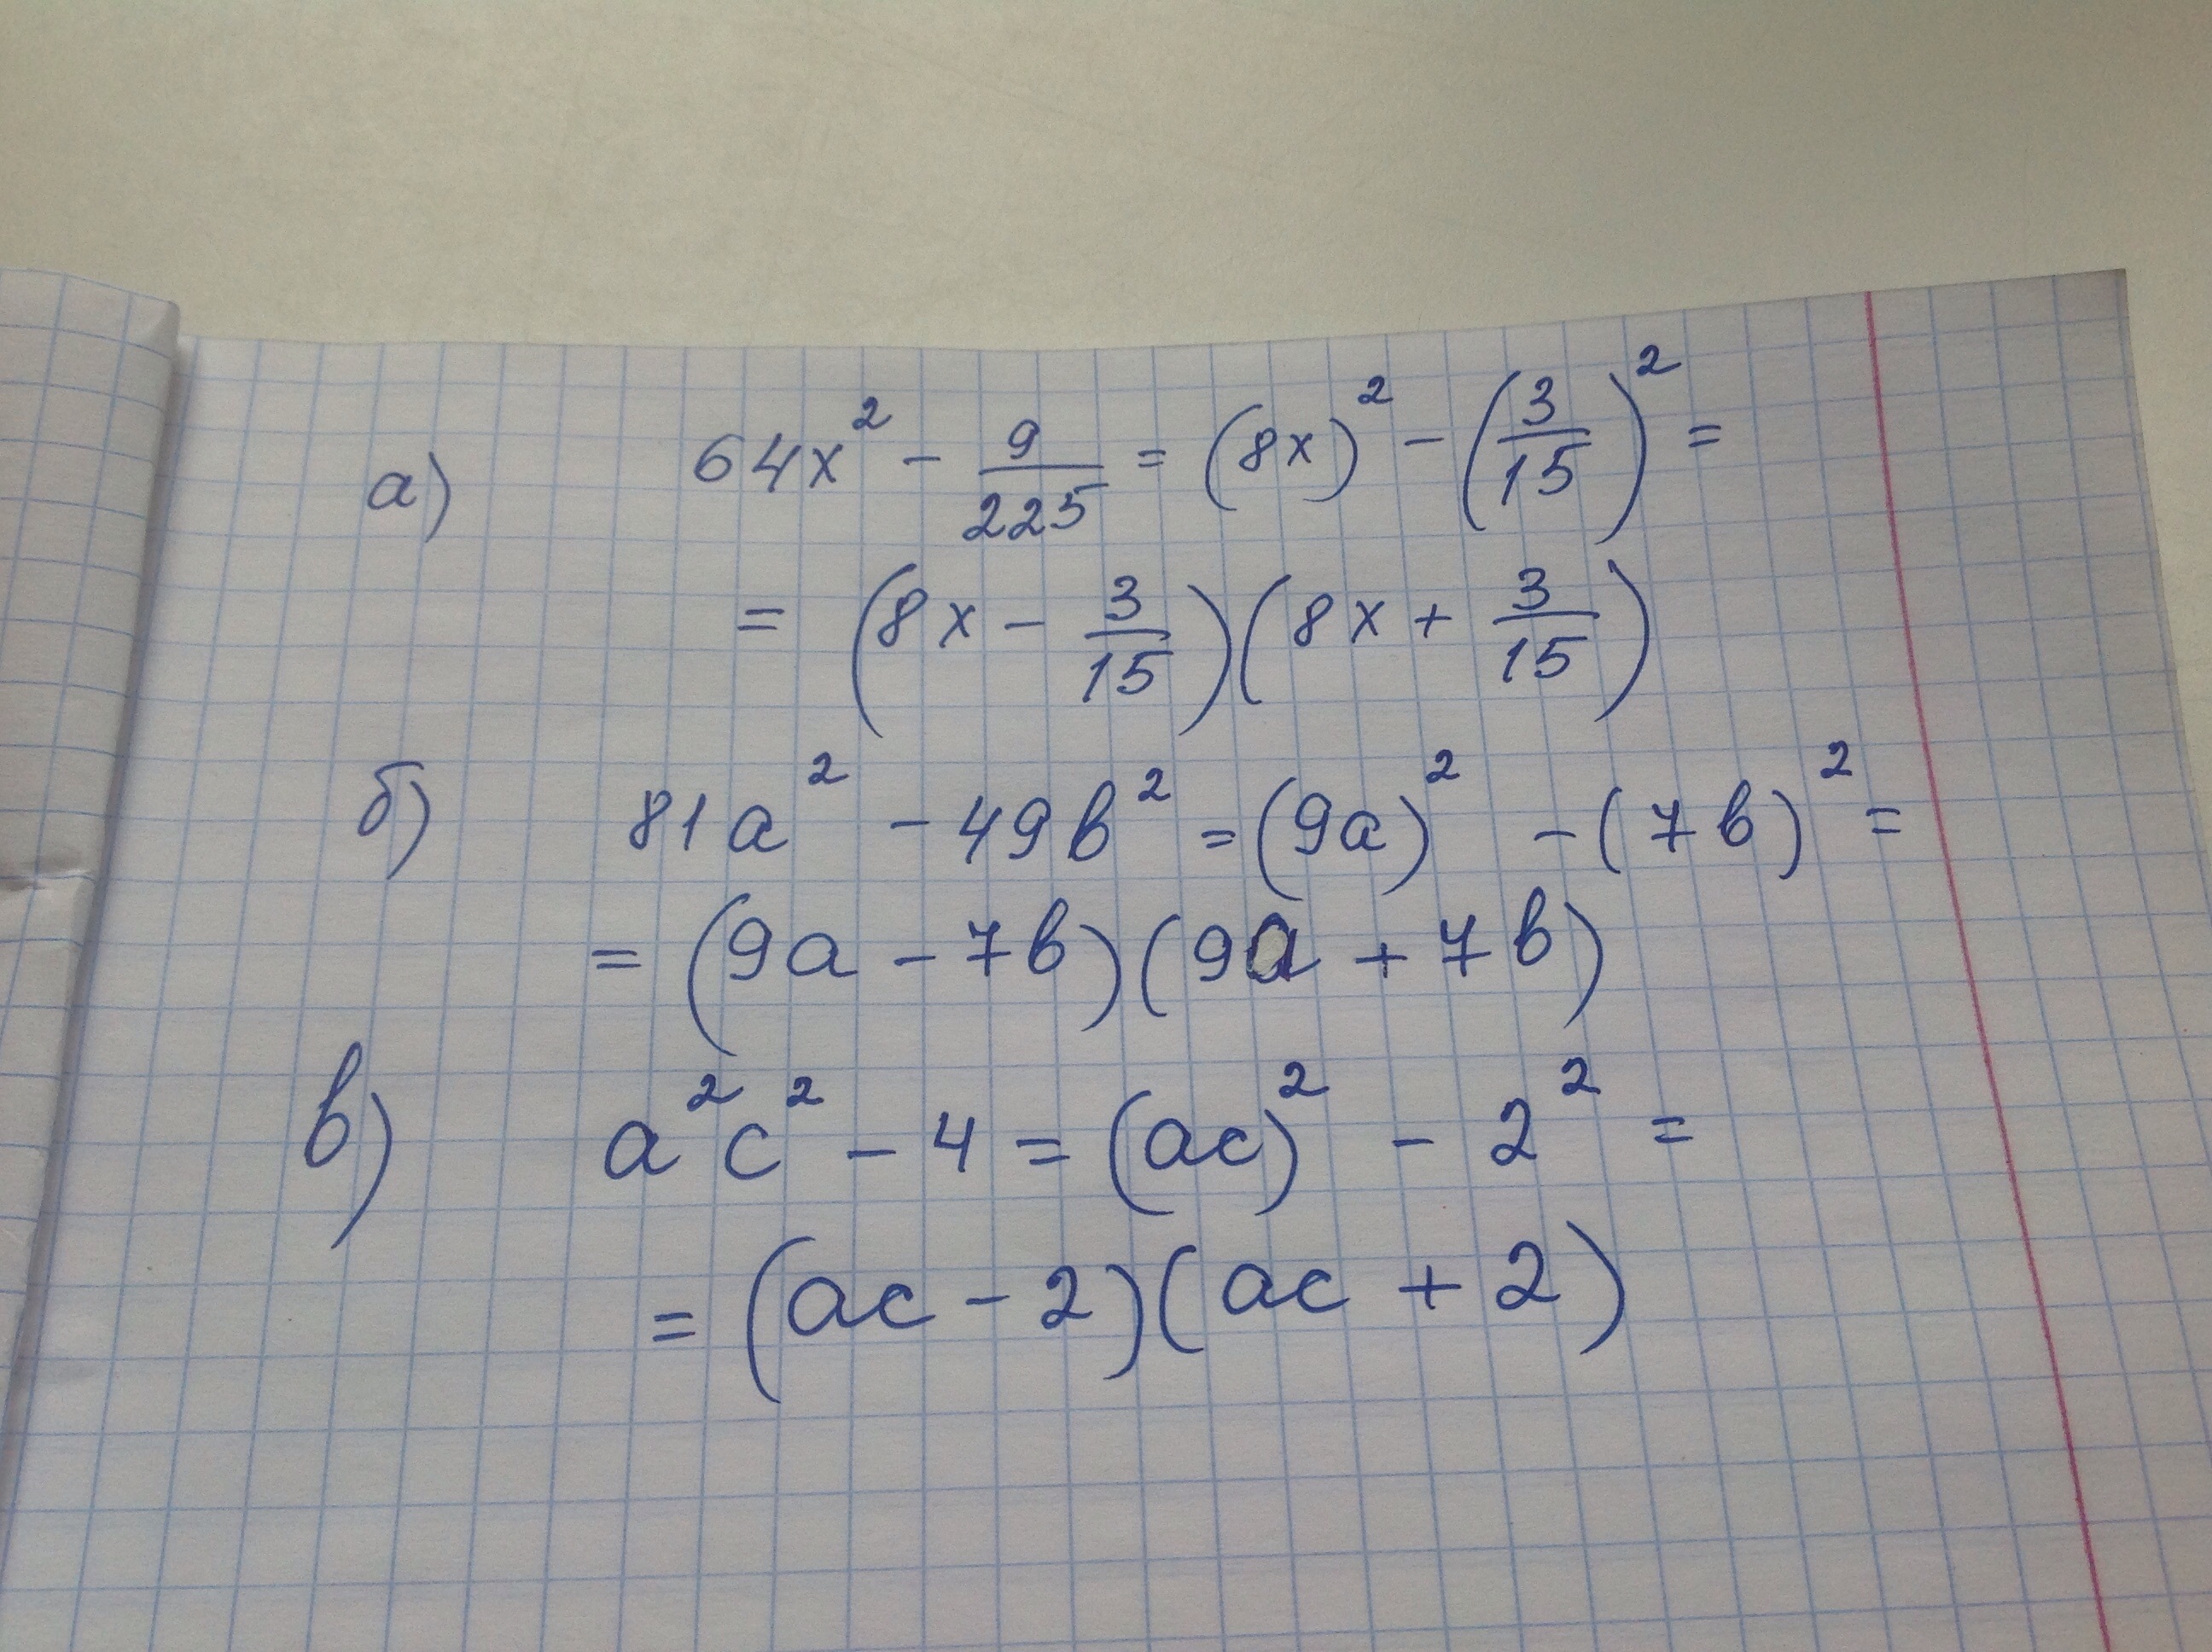 а) 64x² - 9/225 = (8x)² - (3/15)² =
= (8x - 3/15)(8x + 3/15)
б) 81a² - 49b² = (9a)² - (7b)² =
= (9a - 7b)(9a + 7b)
в) a²c² - 4 = (ac)² - 2² =
= (ac - 2)(ac + 2)